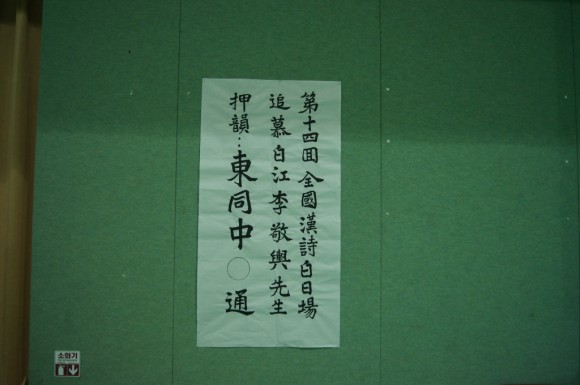 第十四回 全國漢詩白日場
追慕白江李敬輿先生
押韻：東同中○通
소화기